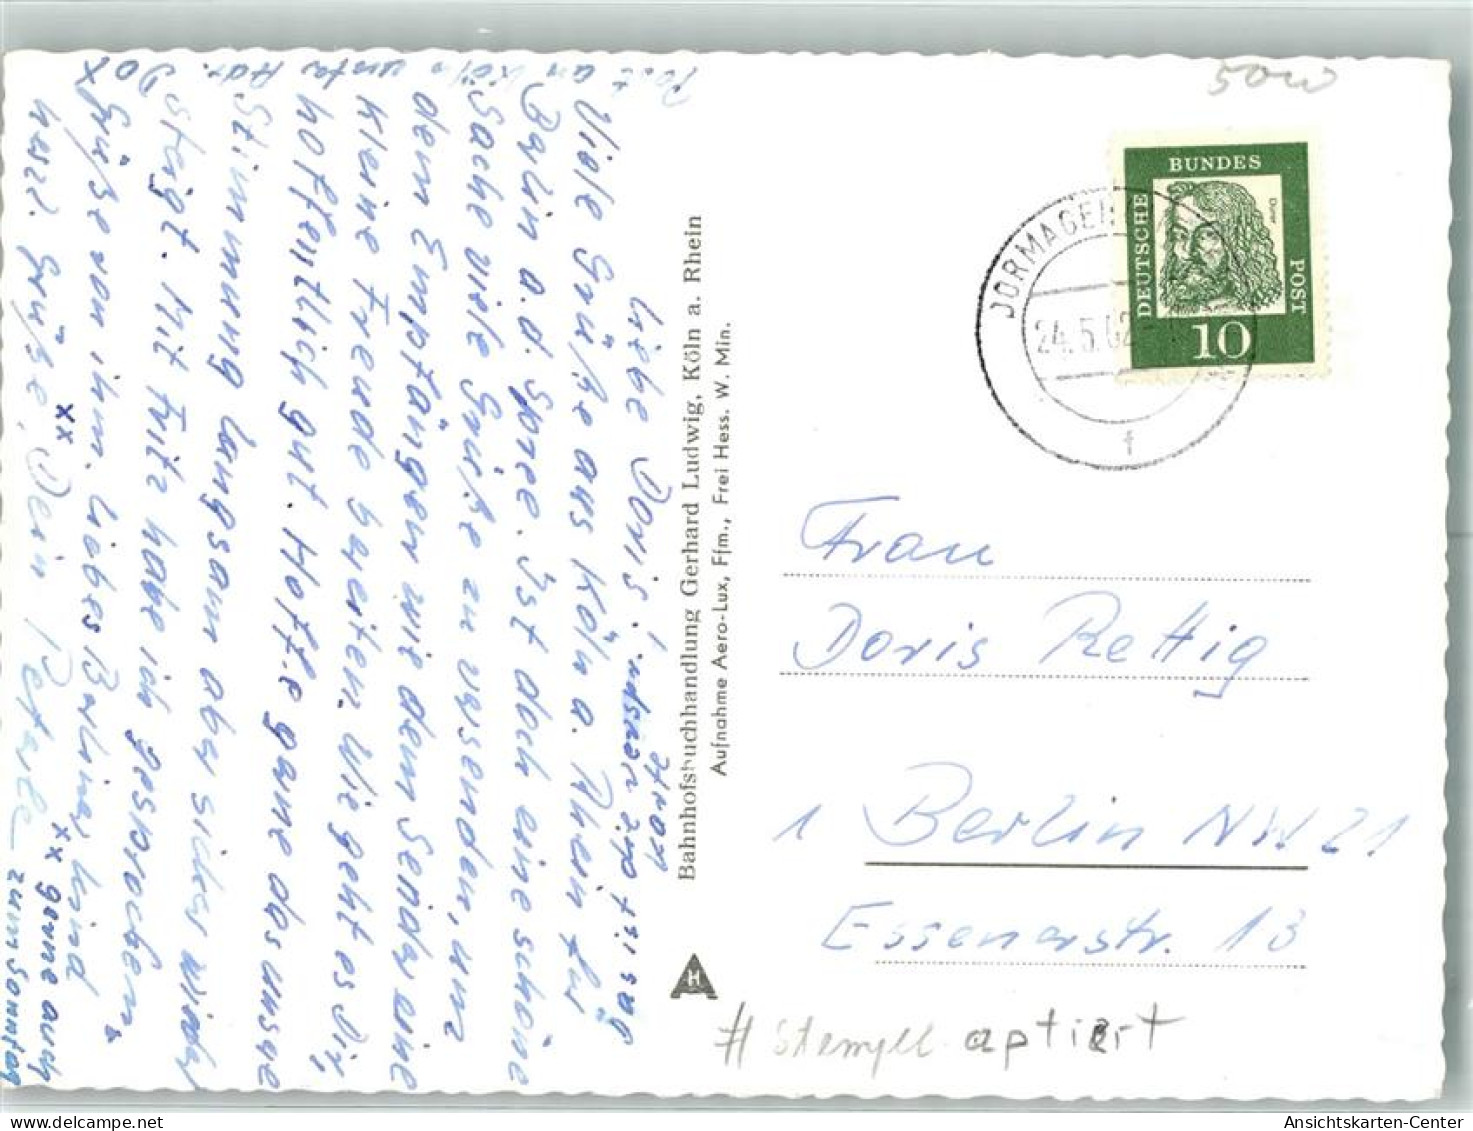 50 w
DEUTSCHE
BUNDES
POST
Dürer
10
DORMAGEN
24.5.62
f
Frau
Doris Rettig
1 Berlin NW 21
Essenerstr. 13
# Stempel aptiert
Bahnhofsbuchhandlung Gerhard Ludwig, Köln a. Rhein
Aufnahme Aero-Lux, Ffm., Frei Hess. W. Min.
H
Liebe Doris!
Das ist unser
Viele Grüße aus Köln a. Rhein für
Berlin a. d. Spree. Ist doch eine schöne
Sache viele Grüße zu versenden, um
dem Empfänger wie dem Sender eine
kleine Freude bereiten. Wie geht es Dir,
hoffentlich gut. Hoffe ganz das unsere
Stimmung langsam aber sicher wieder
steigt. Mit Fritz habe ich gesprochen
xx gerne auch
Grüße von ihm. Liebes Berliner Kind
herzl. Grüße, Dein
xx
zum Sonntag
Ansichtskarten-Center